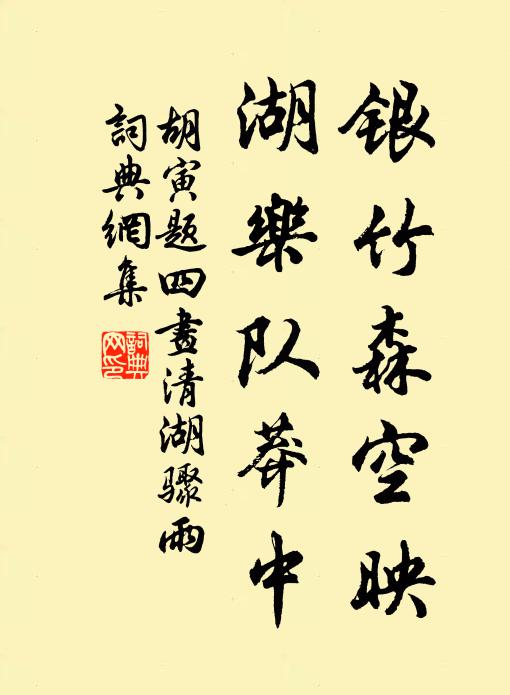 銀竹森空映
湖樂队莽中
胡寅题四畫清湖驟雨
詞典網集
詞典網印